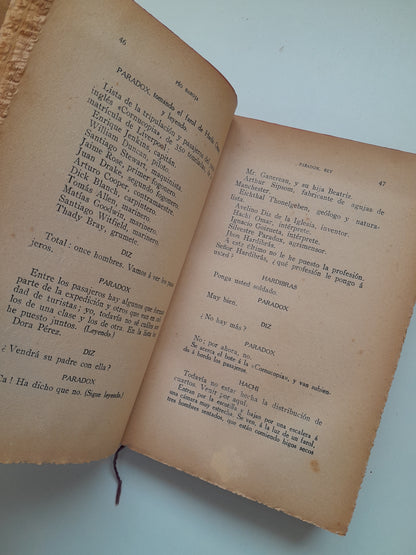 46
PÍO BAROJA
PARADOX, tomando el farol de Hachi Omar
y leyendo
Lista de la tripulación y pasajeros del
inglés «Cornucopia», de 350 toneladas,
matrícula de Liverpool:
Enrique Jenkins, capitán.
William Duncan, piloto.
Santiago Stewart, maquinista
Jaime Rose, primer fogonero.
Juan Drake, segundo fogonero.
Arturo Cooper, contramaestre.
Dick Allana, carpintero.
Tomás Allen, marinero.
Matías Goodwin, marinero.
Santiago Witfield, marinero.
Thady Bray, grumete.
DIZ
Total: once hombres. Vamos á ver los pasa-
jeros.
PARADOX
Entre los pasajeros hay algunos que forman
parte de la expedición y otros que van en cali-
dad de turistas; yo, todavía no sé cuáles son
los de una clase y los de otra. En la lista los
he puesto juntos. (Leyendo.)
Dora Pérez.
DIZ
¿Vendrá su padre con ella?
PARADOX
Ca! Ha dicho que no. (Sigue leyendo.)
PARADOX, REY
47
Mr. Ganereau, y su hija Beatriz.
Arthur Sipsom, fabricante de agujas de
Manchester.
Eichthal Thonelgeben, geólogo y natura-
lista.
Avelino Diz de la Iglesia, inventor.
Hachi Omar, intérprete.
Ignacio Goizueta, intérprete.
Silvestre Paradox, agrimensor.
Jhon Hardibrás.
A este último no le he puesto la profesión.
Señor Hardibrás, ¿qué profesión le pongo á
usted?
HARDIBRAS
Ponga usted soldado.
PARADOX
Muy bien.
DIZ
¿No hay más?
PARADOX
No; por ahora, no.
Se acerca el bote á la «Cornucopia», y van subien-
do á bordo los pasajeros.
HACHI
Todavía no estar hecha la distribución de
cuartos. Venir por aquí.
Entran por la escotilla y bajan por una escalera á
una cámara muy estrecha. Se ven, á la luz de un farol,
tres hombres sentados, que están comiendo higos secos